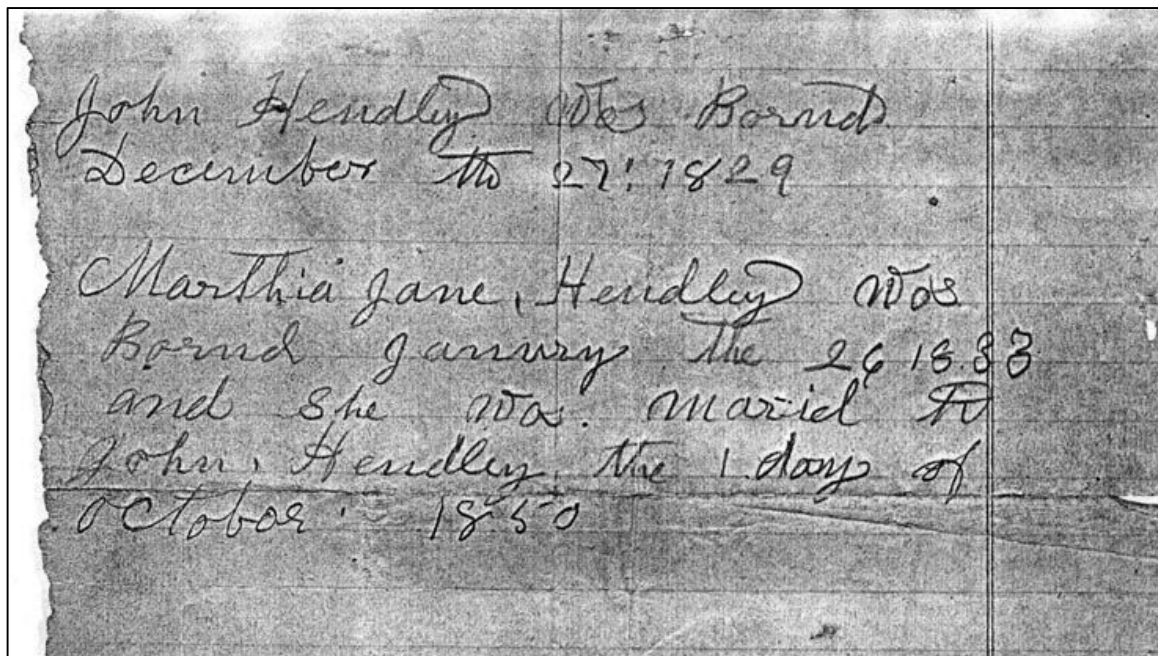 John Hendley Was Bornd
December the 27! 1829
Marthia Jane, Hendley Was
Bornd Janury the 26 18.33
and she Was. Marid to
John, Hendley the 1 day of
October 1850